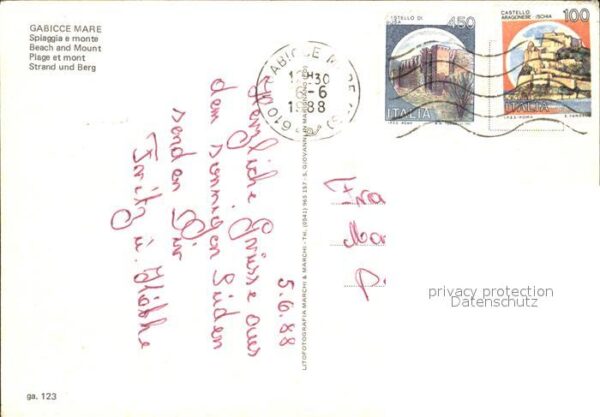 GABICCE MARE
Spiaggia e monte
Beach and Mount
Plage et mont
Strand und Berg
CASTELLO DI
450
ITALIA
CASTELLO
ARAGONESE - ISCHIA
100
ITALIA
GABICCE MARE (PS)
-6
1988
5.6.88
Herzliche Grüsse aus
dem sonnigen Süden
senden Dir
Fritz u.
LITOFOTOGRAFIA MARCHI & MARCHI - TEL. (0541) 965 157 - S. GIOVANNI IN MARIGNANO
privacy protection
Datenschutz
ga. 123